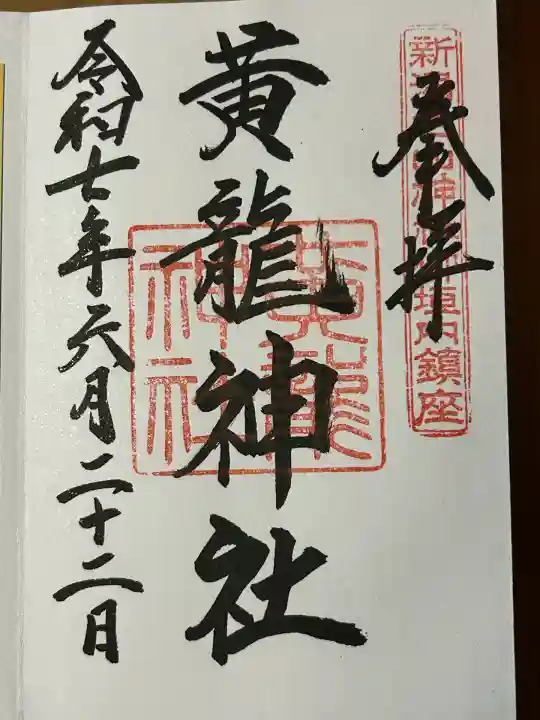 奉拝
新潟白山神社御垣内鎮座
黄龍神社
黄龍神社
令和七年六月二十二日